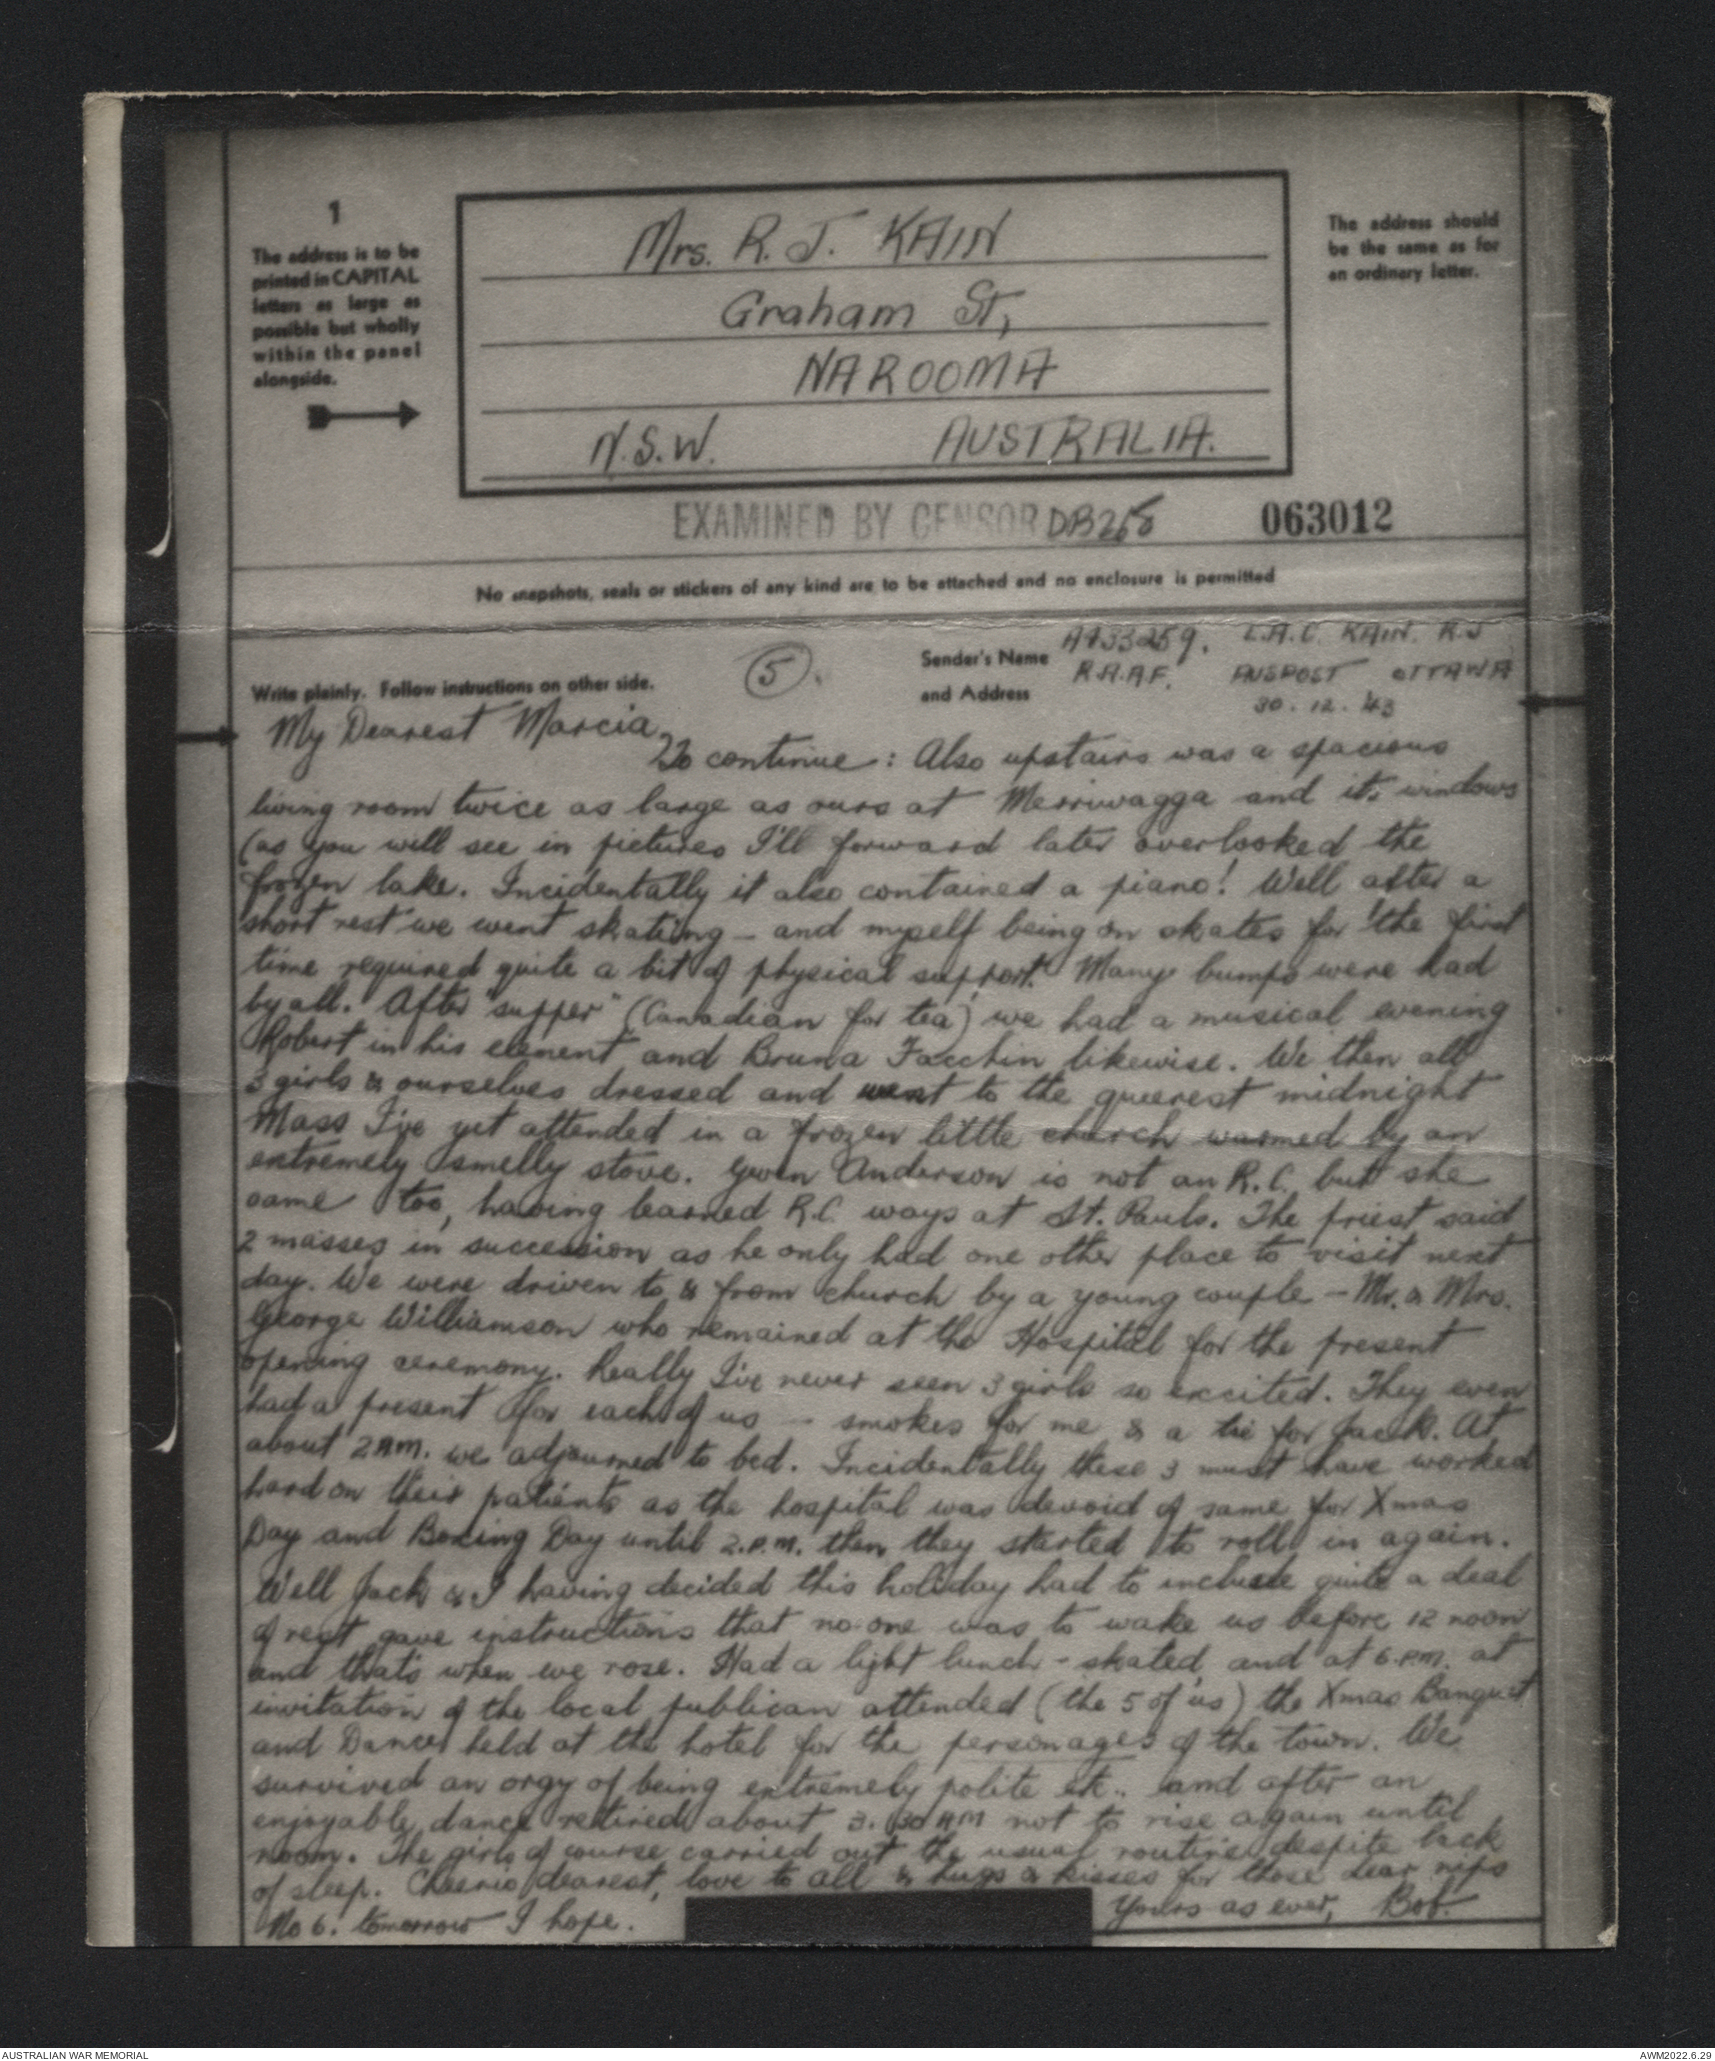 1
The address is to be
printed in CAPITAL
letters as large as
possible but wholly
within the panel
alongside.
Mrs. R. J. KAIN
Graham St,
NAROOMA
N.S.W. AUSTRALIA.
The address should
be the same as for
an ordinary letter.
EXAMINED BY CENSOR DB268
063012
No snapshots, seals or stickers of any kind are to be attached and no enclosure is permitted
Write plainly. Follow instructions on other side.
(5).
Sender's Name
and Address
A433259. L.A.C. KAIN. R.J
R.A.A.F. AUSPOST OTTAWA
30.12.43
My Dearest Marcia,
To continue: Also upstairs was a spacious
living room twice as large as ours at Merriwagga and its windows
(as you will see in pictures I'll forward later overlooked the
frozen lake. Incidentally it also contained a piano! Well after a
short rest we went skating - and myself being on skates for the first
time required quite a bit of physical support. Many bumps were had
by all. After "supper" (Canadian for tea) we had a musical evening
Robert in his element and Bruna Facchin likewise. We then all
3 girls & ourselves dressed and went to the queerest midnight
Mass I've yet attended in a frozen little church warmed by an
extremely smelly stove. Gwen Anderson is not an R.C. but she
came too, having learned R.C. ways at St. Pauls. The priest said
2 masses in succession as he only had one other place to visit next
day. We were driven to & from church by a young couple - Mr. & Mrs.
George Williamson who remained at the Hospital for the present
opening ceremony. Really I've never seen 3 girls so excited. They even
had a present for each of us - smokes for me & a tie for Jack. At
about 2 AM. we adjourned to bed. Incidentally these 3 must have worked
hard on their patients as the hospital was devoid of same for Xmas
Day and Boxing Day until 2.P.M. then they started to roll in again.
Well Jack & I having decided this holiday had to include quite a deal
of rest gave instructions that no-one was to wake us before 12 noon
and that's when we rose. Had a light lunch - skated, and at 6.PM. at
invitation of the local publican attended (the 5 of us) the Xmas Banquet
and Dance held at the hotel for the personages of the town. We
survived an orgy of being extremely polite etc.. and after an
enjoyable dance retired about 3.30 AM not to rise again until
noon. The girls of course carried out the usual routine despite lack
of sleep. Cheerio dearest, love to all & hugs & kisses for those dear nips
No 6. tomorrow I hope. Yours as ever, Bob.
AUSTRALIAN WAR MEMORIAL
AWM2022.6.29